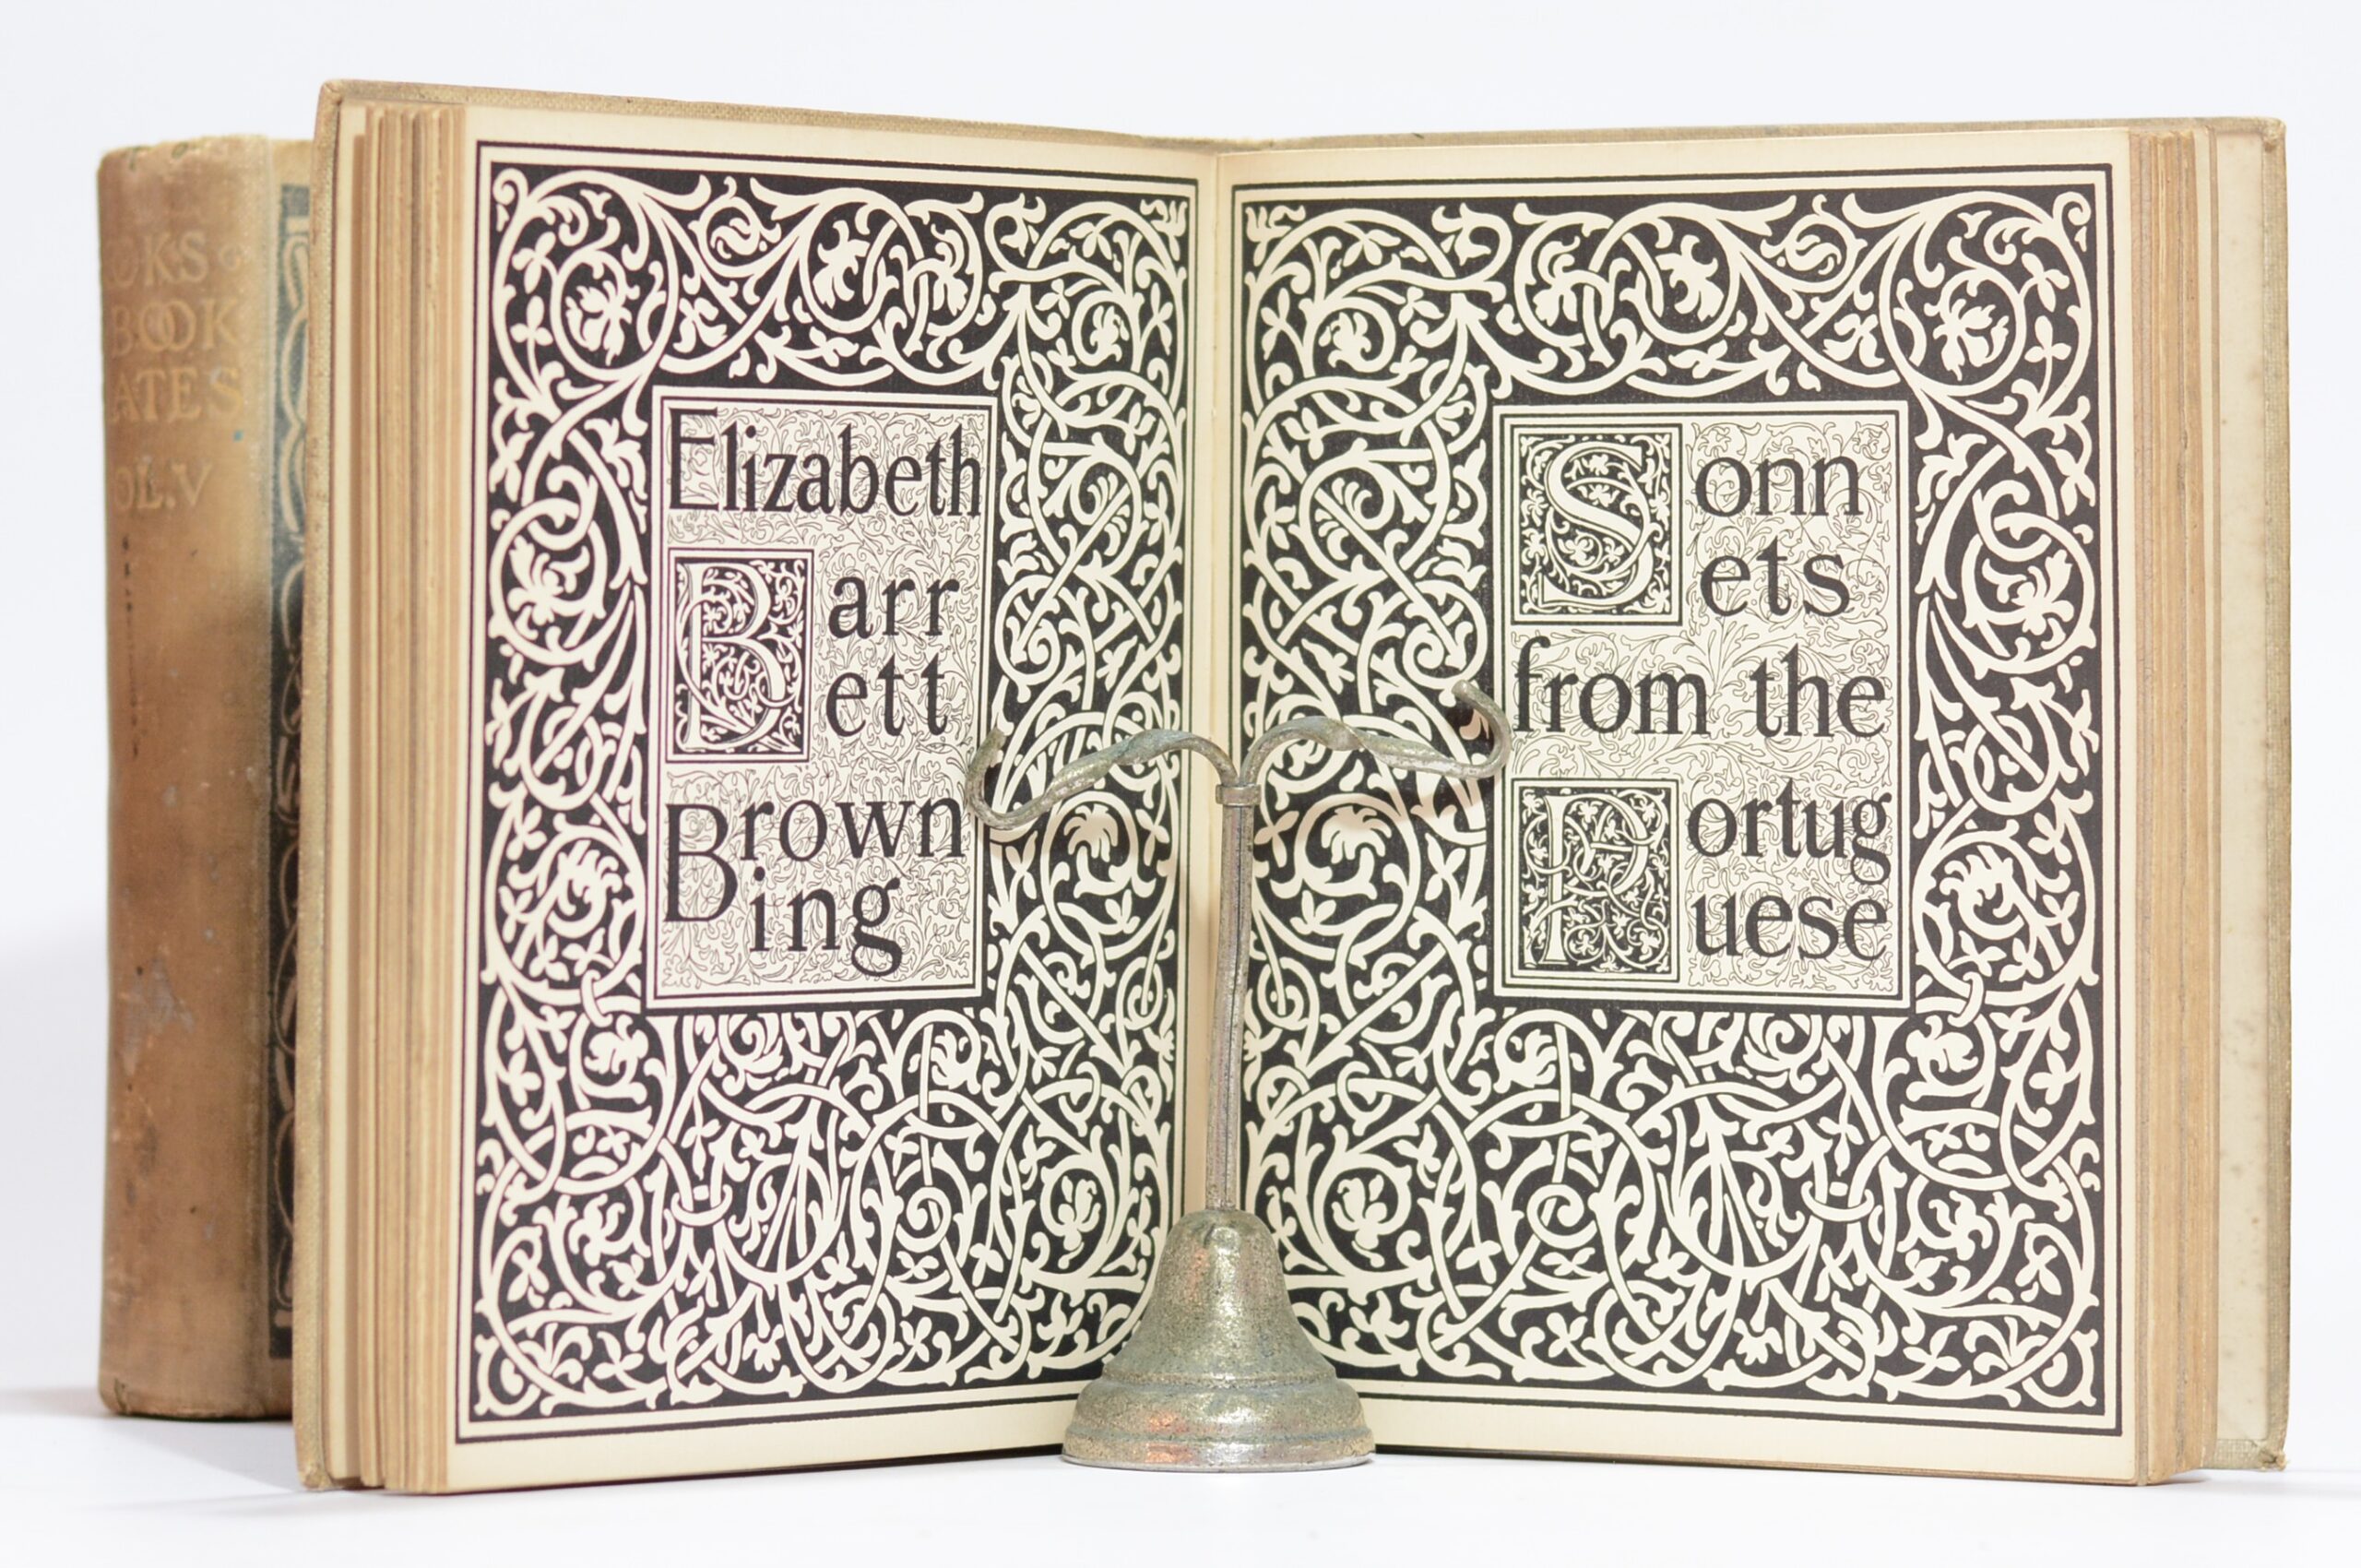 OKS
BOOK
ATES
OL.V
Elizabeth
Barr
ett
Brown
ing
Sonn
ets
from the
Portug
uese